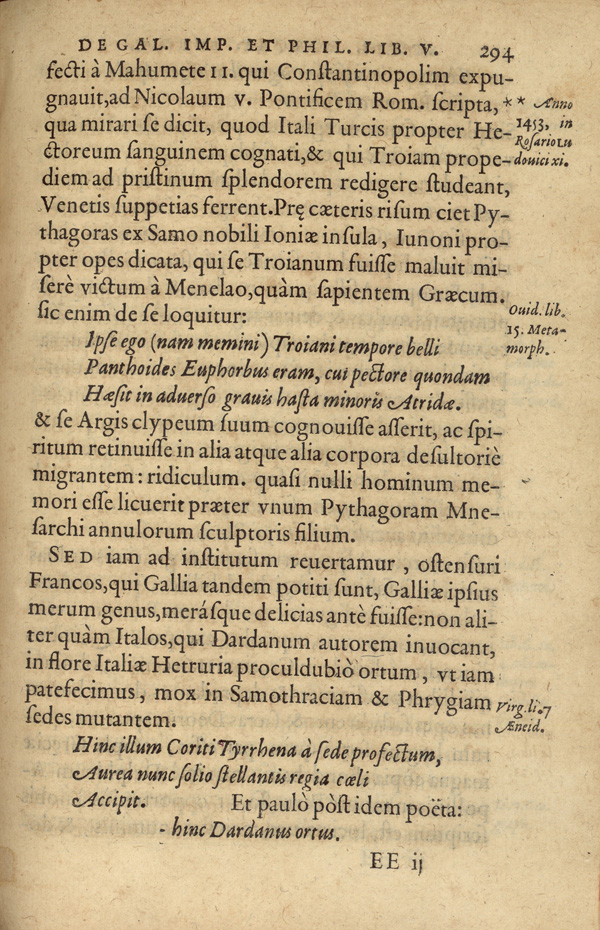 DE GAL. IMP. ET PHIL. LIB. V. 294
fecti à Mahumete II. qui Conſtantinopolim expu-
gnauit, ad Nicolaum V. Pontificem Rom. ſcripta, ** Anno
qua mirari ſe dicit, quod Itali Turcis propter He- 1453. in
ctoreum ſanguinem cognati, & qui Troiam prope- Roſario Lu
diem ad priſtinum ſplendorem redigere ſtudeant, douici xi.
Venetis ſuppetias ferrent. Prę cæteris riſum ciet Py-
thagoras ex Samo nobili Ioniæ inſula, Iunoni pro-
pter opes dicata, qui ſe Troianum fuiſſe maluit mi-
ſerè victum à Menelao, quàm ſapientem Græcum.
ſic enim de ſe loquitur: Ouid. lib.
Ipſe ego (nam memini) Troiani tempore belli 15. Meta-
Panthoides Euphorbus eram, cui pectore quondam morph.
Hæſit in aduerſo grauis haſta minoris Atridæ.
& ſe Argis clypeum ſuum cognouiſſe aſſerit, ac ſpi-
ritum retinuiſſe in alia atque alia corpora deſultoriè
migrantem: ridiculum. quaſi nulli hominum me-
mori eſſe licuerit præter vnum Pythagoram Mne-
ſarchi annulorum ſculptoris filium.
SED iam ad inſtitutum reuertamur, oſtenſuri
Francos, qui Gallia tandem potiti ſunt, Galliæ ipſius
merum genus, meráſque delicias antè fuiſſe: non ali-
ter quàm Italos, qui Dardanum autorem inuocant,
in flore Italiæ Hetruria proculdubiò ortum, vt iam
patefecimus, mox in Samothraciam & Phrygiam Virg. li. 7
ſedes mutantem. Æneid.
Hinc illum Coriti Tyrrhena à ſede profectum,
Aurea nunc ſolio ſtellantis regia cæli
Accipit. Et paulò pòſt idem poëta:
- hinc Dardanus ortus.
EE ij